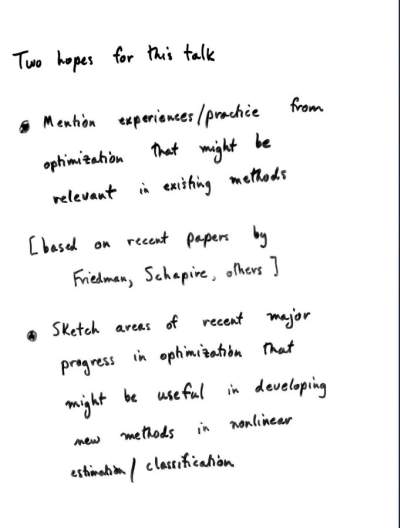 Two hopes for this talk
• Mention experiences/practice from
optimization that might be
relevant in existing methods
[based on recent papers by
Friedman, Schapire, others]
• Sketch areas of recent major
progress in optimization that
might be useful in developing
new methods in nonlinear
estimation/classification